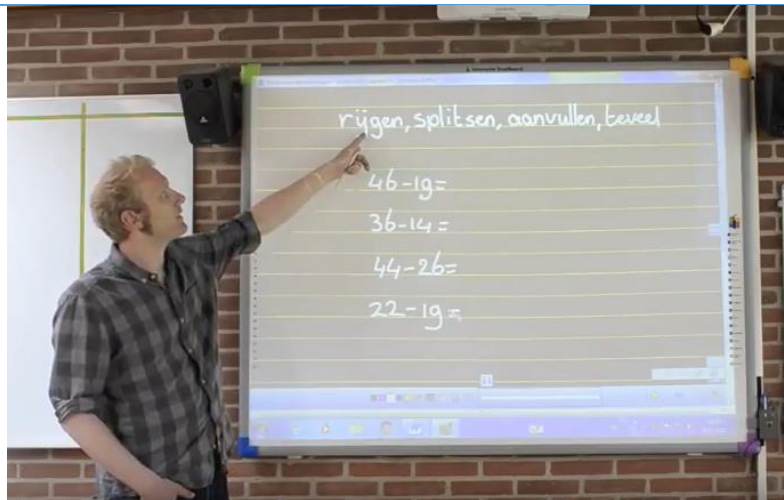 rijgen, splitsen, aanvullen, teveel
46-19=
36-14=
44-26=
22-19=